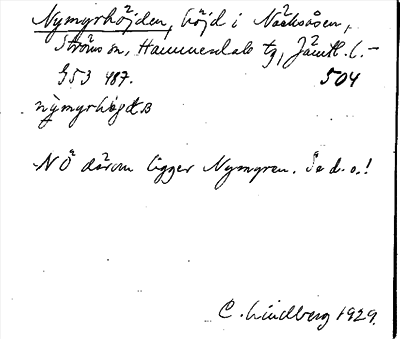 Nymyrhöjden, höjd i Näcksåsen,
Ströms sn, Hammerdals tg, Jämtl. l. –
953 487. 504
nymyrhögd
NÖ därom ligger Nymyren. Se d. o.!
C. Lindberg 1929.